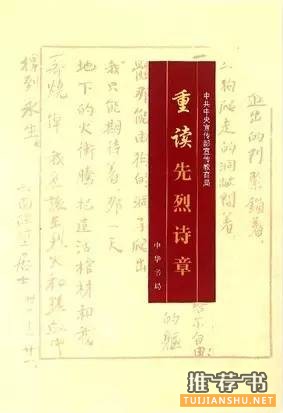 中共中央宣传部宣传教育局
重读先烈诗章
中华书局
出的门紧锁着
狗爬走的洞敞开着
尔自由
的躯
由狗的洞子爬出
我只能期待着那一天
地下的火冲腾把这活棺材和我
一齐烧掉 我应该在烈火和热血中
得到永生
六面碰壁居士
推荐书
TUIJIANSHU.NET